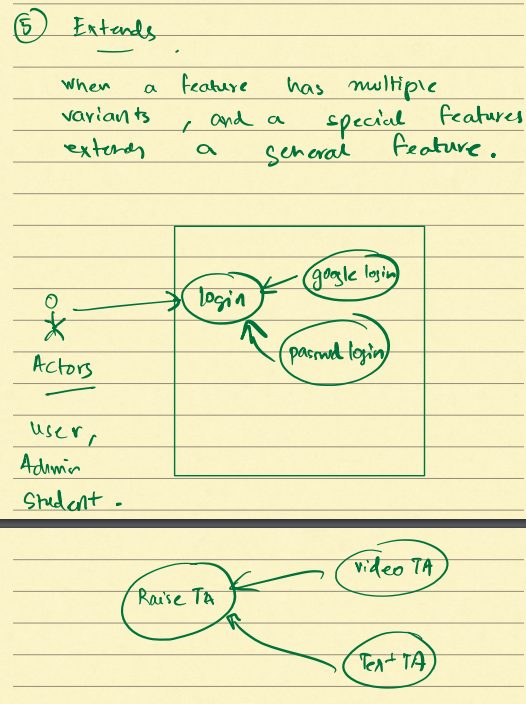 5 Extends
when a feature has multiple
variants, and a special features
extends a general feature.
login
google login
passwd login
Actors
user,
Admin
Student.
Raise TA
video TA
Text TA